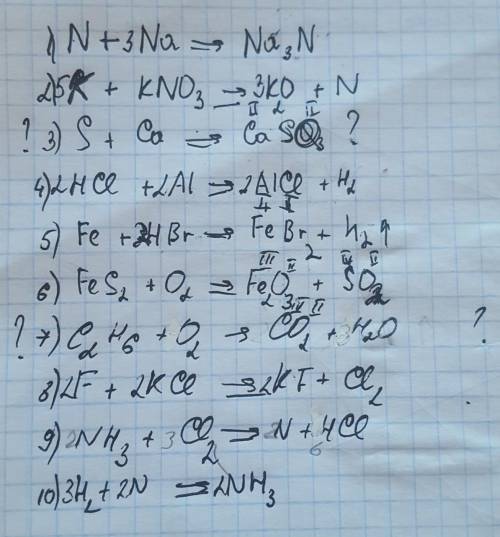 1) N + 3Na ⇒ Na3N
2) 5K + KNO3 → 3K2O + N
? 3) S + Ca ⇒ CaS ?
4) 2HCl + 2Al ⇒ 2AlCl + H2
5) Fe + 2HBr → FeBr2 + H2↑
6) FeS2 + O2 ⇒ Fe2O3 + SO2
? 7) C2H6 + O2 → CO2 + 3H2O ?
8) 2F + 2KCl ⇒ 2KF + Cl2
9) 2NH3 + 3Cl2 ⇒ 2N + 6HCl
10) 3H2 + 2N ⇒ 2NH3